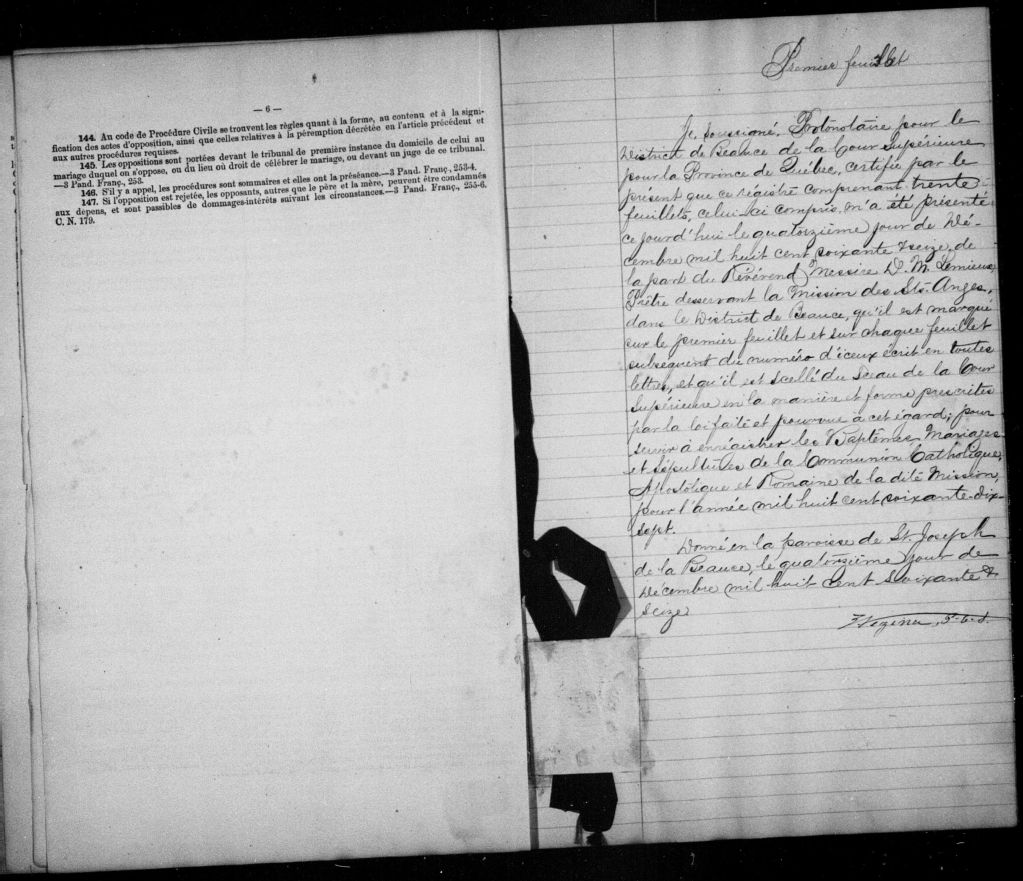 — 6 —
144. Au code de Procédure Civile se trouvent les règles quant à la forme, au contenu et à la signi-
fication des actes d'opposition, ainsi que celles relatives à la péremption décrétée en l'article précédent et
aux autres procédures requises.
145. Les oppositions sont portées devant le tribunal de première instance du domicile de celui au
mariage duquel on s'oppose, ou du lieu où droit de célébrer le mariage, ou devant un juge de ce tribunal.
—3 Pand. Franç., 253.
146. S'il y a appel, les procédures sont sommaires et elles ont la préséance.—3 Pand. Franç., 253-4.
147. Si l'opposition est rejetée, les opposants, autres que le père et la mère, peuvent être condamnés
aux dépens, et sont passibles de dommages-intérêts suivant les circonstances.—3 Pand. Franç., 255-6.
C. N. 179.
Premier feuillet
Je, soussigné, Protonotaire pour le
District de Beauce de la Cour Supérieure
pour la Province de Québec, certifie par le
présent que ce registre comprenant trente
feuillets, celui-ci compris, m'a été présenté
ce jourd'hui le quatorzième jour de Dé-
cembre mil huit cent soixante & seize, de
la part du Révérend Messire D. M. Lemieux,
Prêtre desservant la Mission des Sts. Anges,
dans le District de Beauce, qu'il est marqué
sur le premier feuillet et sur chaque feuillet
subséquent du numéro d'iceux écrit en toutes
lettres, et qu'il est scellé du Sceau de la Cour
Supérieure en la manière et forme prescrites
par la loi faite et pourvue à cet égard; pour
servir à enrégistrer les Baptêmes, Mariages
et Sépultures de la Communion Catholique,
Apostolique et Romaine de la dite Mission,
pour l'année mil huit cent soixante-dix-
sept.
Donné en la paroisse de St. Joseph
de la Beauce, le quatorzième jour de
Décembre mil huit cent soixante &
seize
Vézina, P.C.S.